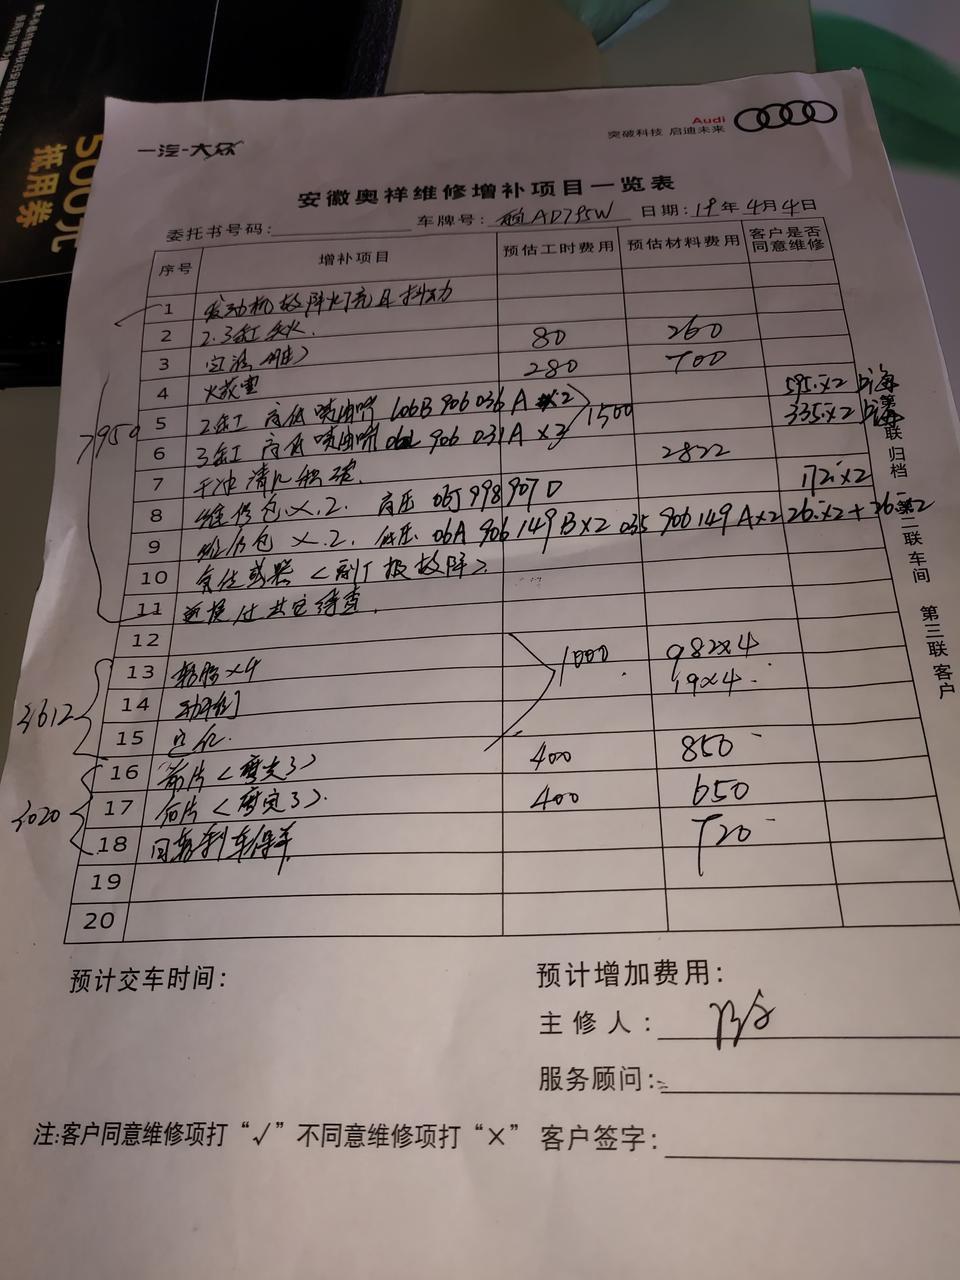 500元
抵用券
一汽-大众
Audi
突破科技 启迪未来
安徽奥祥维修增补项目一览表
委托书号码: 车牌号: AD795W 日期: 19年4月4日
序号 增补项目 预估工时费用 预估材料费用 客户是否同意维修
1 发动机故障灯亮且抖动
2 2.3缸失火. 80 260
3 280 700
4 火花塞
5 2缸 高低喷油嘴 06B 906 036 A x2 1500 595x2 上海
6 3缸 高低喷油嘴 906 031A x2 335x2 上海
7 干冰清洗积碳. 2822
8 维修包x.2. 高压 06J 998 907 D 172x2
9 维修包 x.2. 低压. 06A 906 149 B x2 035 906 149 A x2 26x2+26x2
10
11
7950
12
13 轮胎x4 1000 982x4
14 动平衡 19x4
15 定位.
3612
16 前片 400 850
17 后片 400 650
18 四轮刹车保养 720
3020
19
20
第一联 归档
第二联 车间
第三联 客户
预计交车时间:
预计增加费用:
主修人:
服务顾问:
注:客户同意维修项打“√”不同意维修项打“×” 客户签字: